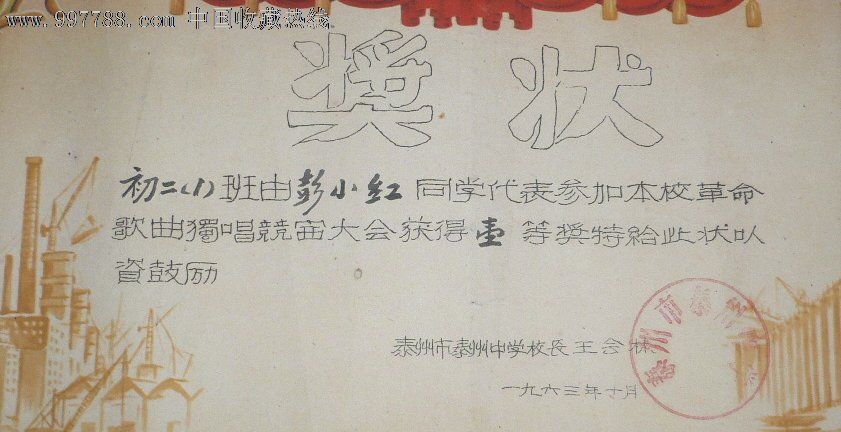 www.997788.com 中国收藏热线
奖 状
初二(1)班由彭小红同学代表参加本校革命
歌曲獨唱競宙大会获得壹等奖特給此状以
資鼓励
泰州市泰州中学校长王会
一九六三年十月
泰州市泰州